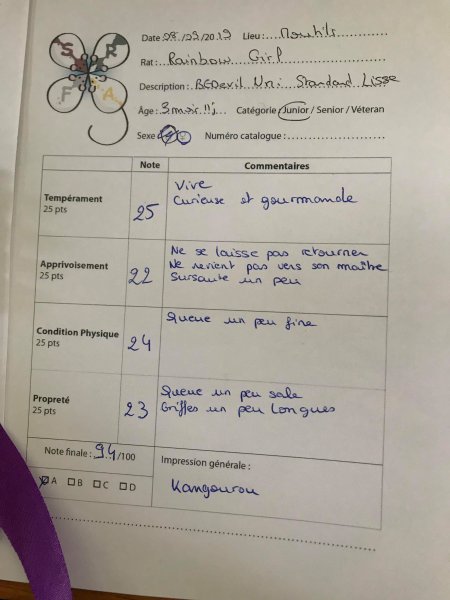 S R
F A
Date 28/09/2019 Lieu : Moutils
Rat : Rainbow Girl
Description : BEDevil Uni Standard Lisse
Âge : 3 mois 11j Catégorie : Junior / Senior / Véteran
Sexe Numéro catalogue :
Note Commentaires
Tempérament
25 pts
25
Vive
Curieuse et gourmande
Apprivoisement
25 pts
22
Ne se laisse pas retourner
Ne revient pas vers son maître
Sursaute un peu
Condition Physique
25 pts
24
Queue un peu fine
Propreté
25 pts
23
Queue un peu sale
Griffes un peu longues
Note finale : 94/100
A B C D
Impression générale :
Kangourou